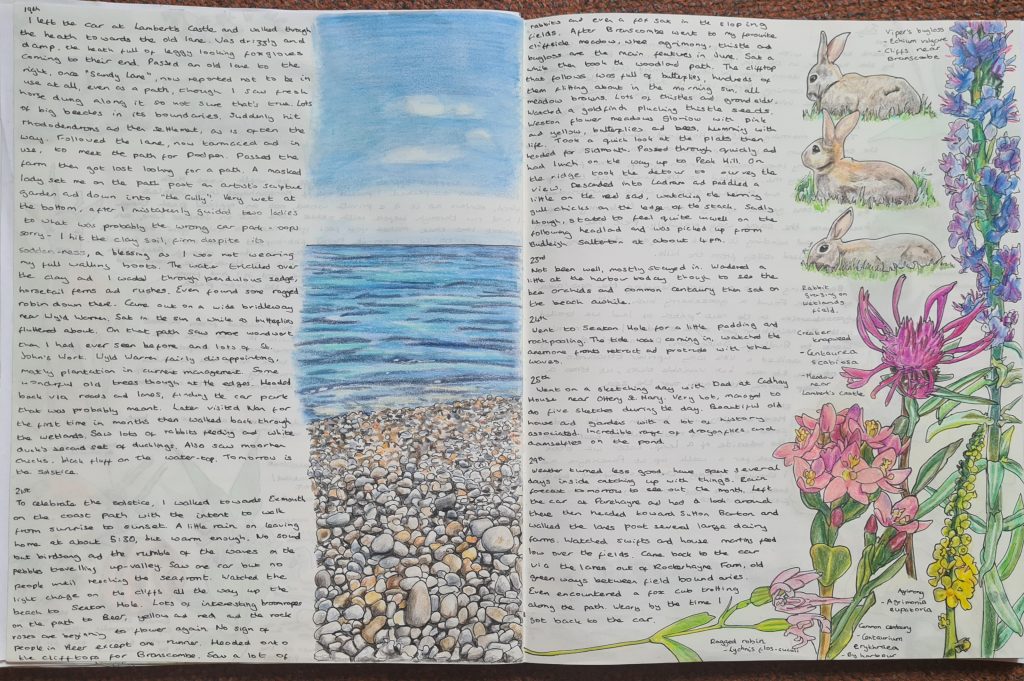 19th
I left the car at Lambert's Castle and walked through
the heath towards the old lane. Was drizzly and
damp, the heath full of leggy looking foxgloves
coming to their end. Passed an old lane to the
right, once "Sandy Lane", now reported not to be in
use at all, even as a path, though I saw fresh
horse dung along it so not sure that's true. Lots
of big beeches in its boundaries. Suddenly hit
rhododendrons and then settlement, as is often the
way. Followed the lane, now tarmaced and in
use, to meet the path for Passed the
farm then got lost looking for a path. A masked
lady set me on the path past an artist's sculpture
garden and down into "the Gully". Very wet at
the bottom, after I mistakenly guided two ladies
to what was probably the wrong car park - oops
sorry - I hit the clay soil, firm despite its
sodden-ness, a blessing as I was not wearing
my full walking boots. The water trickled over
the clay and I waded through pendulous sedges,
horsetail ferns and rushes. Even found some ragged
robin down there. Came out on a wide bridleway
near Wyld Warren. Sat in the sun a while as butterflies
fluttered about. On that path saw more woundwort
than I had ever seen before and lots of St.
John's Wort. Wyld Warren fairly disappointing,
mostly plantation in current management. Some
wonderful old trees though at the edges. Headed
back via roads and lanes, finding the car park
that was probably meant. Later visited Nan for
the first time in months then walked back through
the wetlands. Saw lots of rabbits feeding and white
duck's second set of ducklings. Also saw moorhen
chicks, black fluff on the water-top. Tomorrow is
the solstice.
21st
To celebrate the solstice, I walked towards Exmouth
on the coast path with the intent to walk
from sunrise to sunset. A little rain on leaving
home at about 5:30, but warm enough. No sound
but birdsong and the rumble of the waves on the
pebbles travelling up-valley. Saw one car but no
people until reaching the seafront. Watched the
light change on the cliffs all the way up the
beach to Seaton Hole. Lots of interesting broomrapes
on the path to Beer, yellow and red, and the rock
roses are beginning to flower again. No sign of
people in Beer except one runner. Headed onto
the clifftops for Branscombe. Saw a lot of
rabbits and even a fox sat in the sloping
fields. After Branscombe went to my favourite
cliffside meadow, where agrimony, thistle and
bugloss are the main features in June. Sat a
while then took the woodland path. The clifftop
that follows was full of butterflies, hundreds of
them flitting about in the morning sun, all
meadow browns. Lots of thistles and ground elder.
Watched a goldfinch plucking thistle seeds.
Weston flower meadows glorious with pink
and yellow, butterflies and bees, humming with
life. Took a quick look at the plats then
headed for Sidmouth. Passed through quickly and
had lunch on the way up to Peak Hill. On
the ridge, took the detour to survey the
view. Descended into Ladram and paddled a
little on the red sand, watching the herring
gull chicks on the ledge of the stack. Sadly
though, started to feel quite unwell on the
following headland and was picked up from
Budleigh Salterton at about 4pm.
23rd
Not been well, mostly stayed in. Wandered a
little at the harbour today though to see the
bee orchids and common centaury then sat on
the beach awhile.
24th
Went to Seaton Hole for a little paddling and
rockpooling. The tide was coming in, watched the
anemone fronds retract and protrude with the
waves.
25th
Went on a sketching day with Dad at Cadhay
House near Ottery St Mary. Very hot, managed to
do five sketches during the day. Beautiful old
house and gardens with a lot of history
associated. Incredible range of dragonflies and
damselflies on the pond.
29th
Weather turned less good, have spent several
days inside catching up with things. Rain
forecast tomorrow to see out the month. Left
the car at Parehayne and had a look around
there then headed toward Sutton Barton and
walked the lanes past several large dairy
farms. Watched swifts and house martins feed
low over the fields. Came back to the car
via the lanes out of Roderhayne Farm, old
green ways between field boundaries.
Even encountered a fox cub trotting
along the path. Weary by the time I
got back to the car.
Viper's bugloss
- Echium vulgare
- Cliffs near
Branscombe
Rabbit
grazing on
wetlands
field.
Greater
knapweed
- Centaurea
scabiosa
- Meadow
near
Lambert's Castle
Agrimony
- Agrimonia
eupatoria
Common centaury
- Centaurium
erythraea
- By harbour
Ragged robin
- Lychnis flos-cuculi